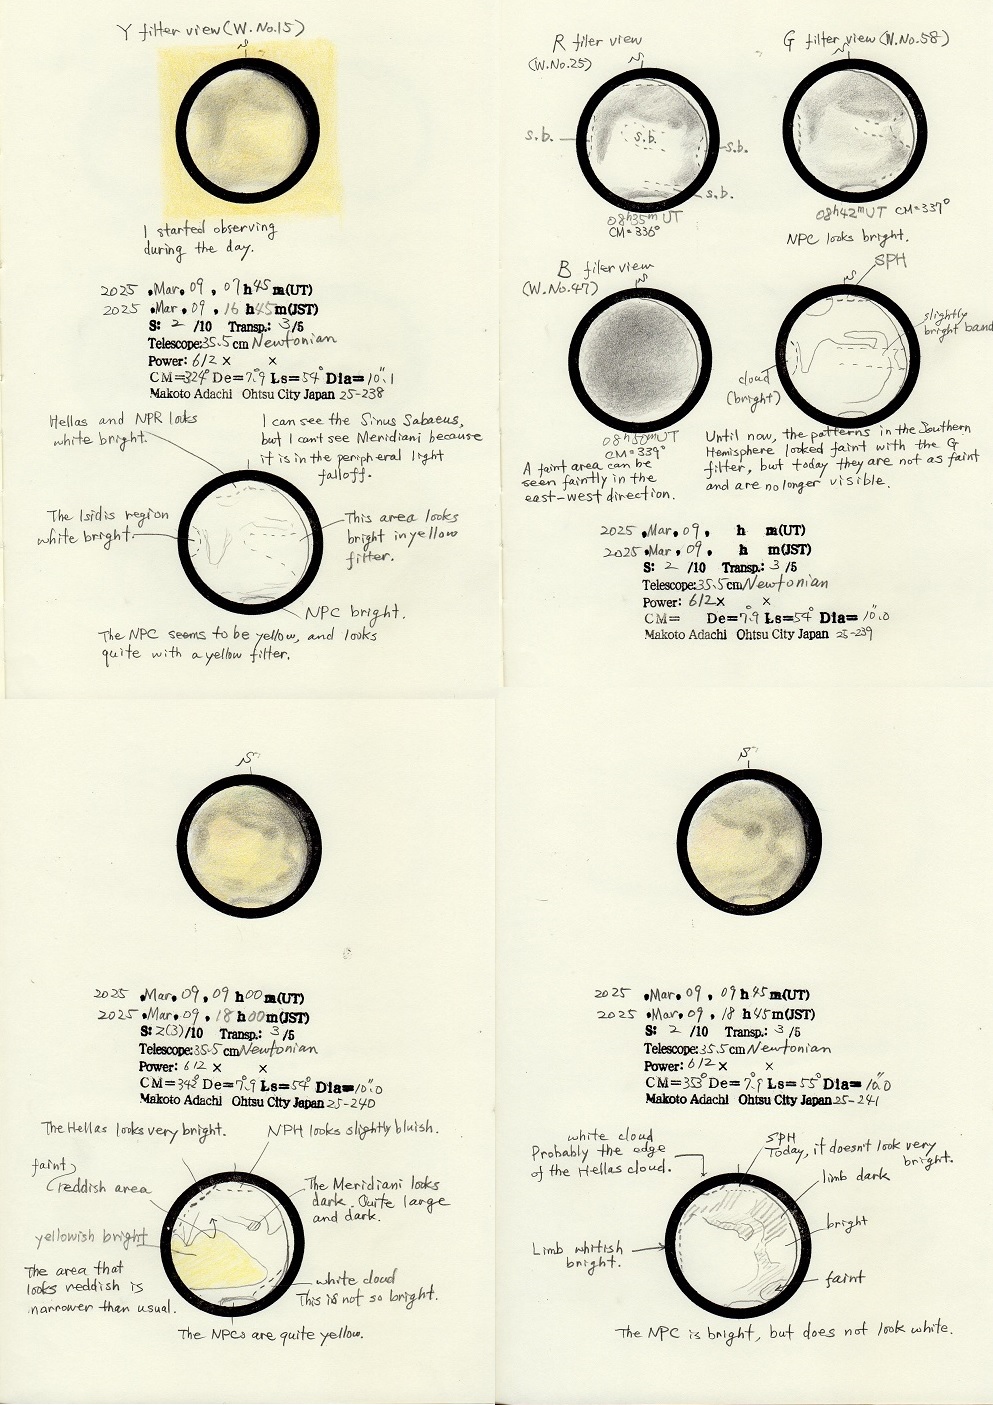 Y filter view (W.No.15)
S
I started observing
during the day.
2025 .Mar. 09 , 07 h 45 m(UT)
2025 .Mar. 09 , 16 h 45 m(JST)
S: 2 /10 Transp.: 3 /5
Telescope: 35.5 cm Newtonian
Power: 612 × ×
CM=324° De=7.°9 Ls=54° Dia=10."1
Makoto Adachi Ohtsu City Japan 25-238
Hellas and NPR looks
white bright.
I can see the Sinus Sabaeus,
but I can't see Meridiani because
it is in the peripheral light
falloff.
The Isidis region
white bright.
This area looks
bright in yellow
filter.
NPC bright.
The NPC seems to be yellow, and looks
quite with a yellow filter.
R filer view
(W.No.25)
S
s.b.
s.b.
s.b.
s.b.
08h35m UT
CM=336°
G filter view (W.No.58)
S
08h42m UT CM=337°
NPC looks bright.
B filer view
(W.No.47)
S
08h50m UT
CM=339°
A faint area can be
seen faintly in the
east-west direction.
S
SPH
slightly
bright band
cloud
(bright)
Until now, the patterns in the Southern
Hemisphere looked faint with the G
filter, but today they are not as faint
and are no longer visible.
2025 .Mar. 09 , h m(UT)
2025 .Mar. 09 , h m(JST)
S: 2 /10 Transp.: 3 /5
Telescope: 35.5 cm Newtonian
Power: 612 × ×
CM= De=7.°9 Ls=54° Dia=10."0
Makoto Adachi Ohtsu City Japan 25-239
S
2025 .Mar. 09 , 09 h 00 m(UT)
2025 .Mar. 09 , 18 h 00 m(JST)
S: 2(3)/10 Transp.: 3 /5
Telescope: 35.5 cm Newtonian
Power: 612 × ×
CM=342° De=7.°9 Ls=54° Dia=10."0
Makoto Adachi Ohtsu City Japan 25-240
The Hellas looks very bright.
NPH looks slightly bluish.
faint
reddish area
The Meridiani looks
dark. Quite large
and dark.
yellowish bright
The area that
looks reddish is
narrower than usual.
white cloud
This is not so bright.
The NPCs are quite yellow.
S
2025 .Mar. 09 , 09 h 45 m(UT)
2025 .Mar. 09 , 18 h 45 m(JST)
S: 2 /10 Transp.: 3 /5
Telescope: 35.5 cm Newtonian
Power: 612 × ×
CM=353° De=7.°9 Ls=55° Dia=10."0
Makoto Adachi Ohtsu City Japan 25-241
white cloud
Probably the edge
of the Hellas cloud.
SPH
Today, it doesn't look very
bright.
limb dark
bright
Limb whitish
bright.
faint
The NPC is bright, but does not look white.